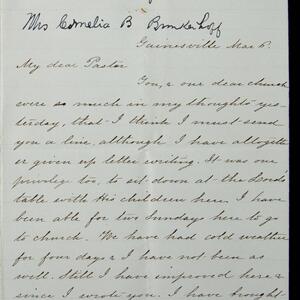 Mrs Cornelia B Brinkerhoff
Gainesville Mar 6.
My dear Pastor
You, & our dear church
were so much in my thoughts yes-
terday, that I think I must send
you a line, although I have altogeth-
er given up letter writing. It was our
privilege too, to sit down at the Lord's
table with His children here. I have
been able for two Sundays here to go
to church. We have had cold weather
for four days & I have not been as
well. Still I have improved here &
since I wrote you. I have brought